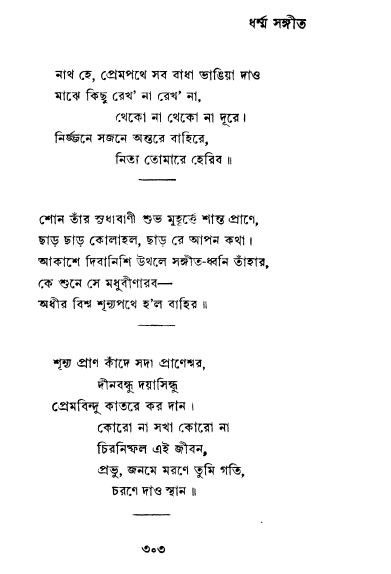 ধর্ম্ম সঙ্গীত
নাথ হে, প্রেমপথে সব বাধা ভাঙিয়া দাও
মাঝে কিছু রেখ' না রেখ' না,
থেকো না থেকো না দূরে।
নির্জ্জনে সজনে অন্তরে বাহিরে,
নিত্য তোমারে হেরিব॥
শোন তাঁর সুধাবাণী শুভ মুহূর্ত্তে শান্ত প্রাণে,
ছাড় ছাড় কোলাহল, ছাড় রে আপন কথা।
আকাশে দিবানিশি উথলে সঙ্গীত-ধ্বনি তাঁহার,
কে শুনে সে মধুবীণারব—
অধীর বিশ্ব শূন্যপথে হ'ল বাহির॥
শূন্য প্রাণ কাঁদে সদা প্রাণেশ্বর,
দীনবন্ধু দয়াসিন্ধু
প্রেমবিন্দু কাতরে কর দান।
কোরো না সখা কোরো না
চিরনিষ্ফল এই জীবন,
প্রভু, জনমে মরণে তুমি গতি,
চরণে দাও স্থান॥
৩০৩